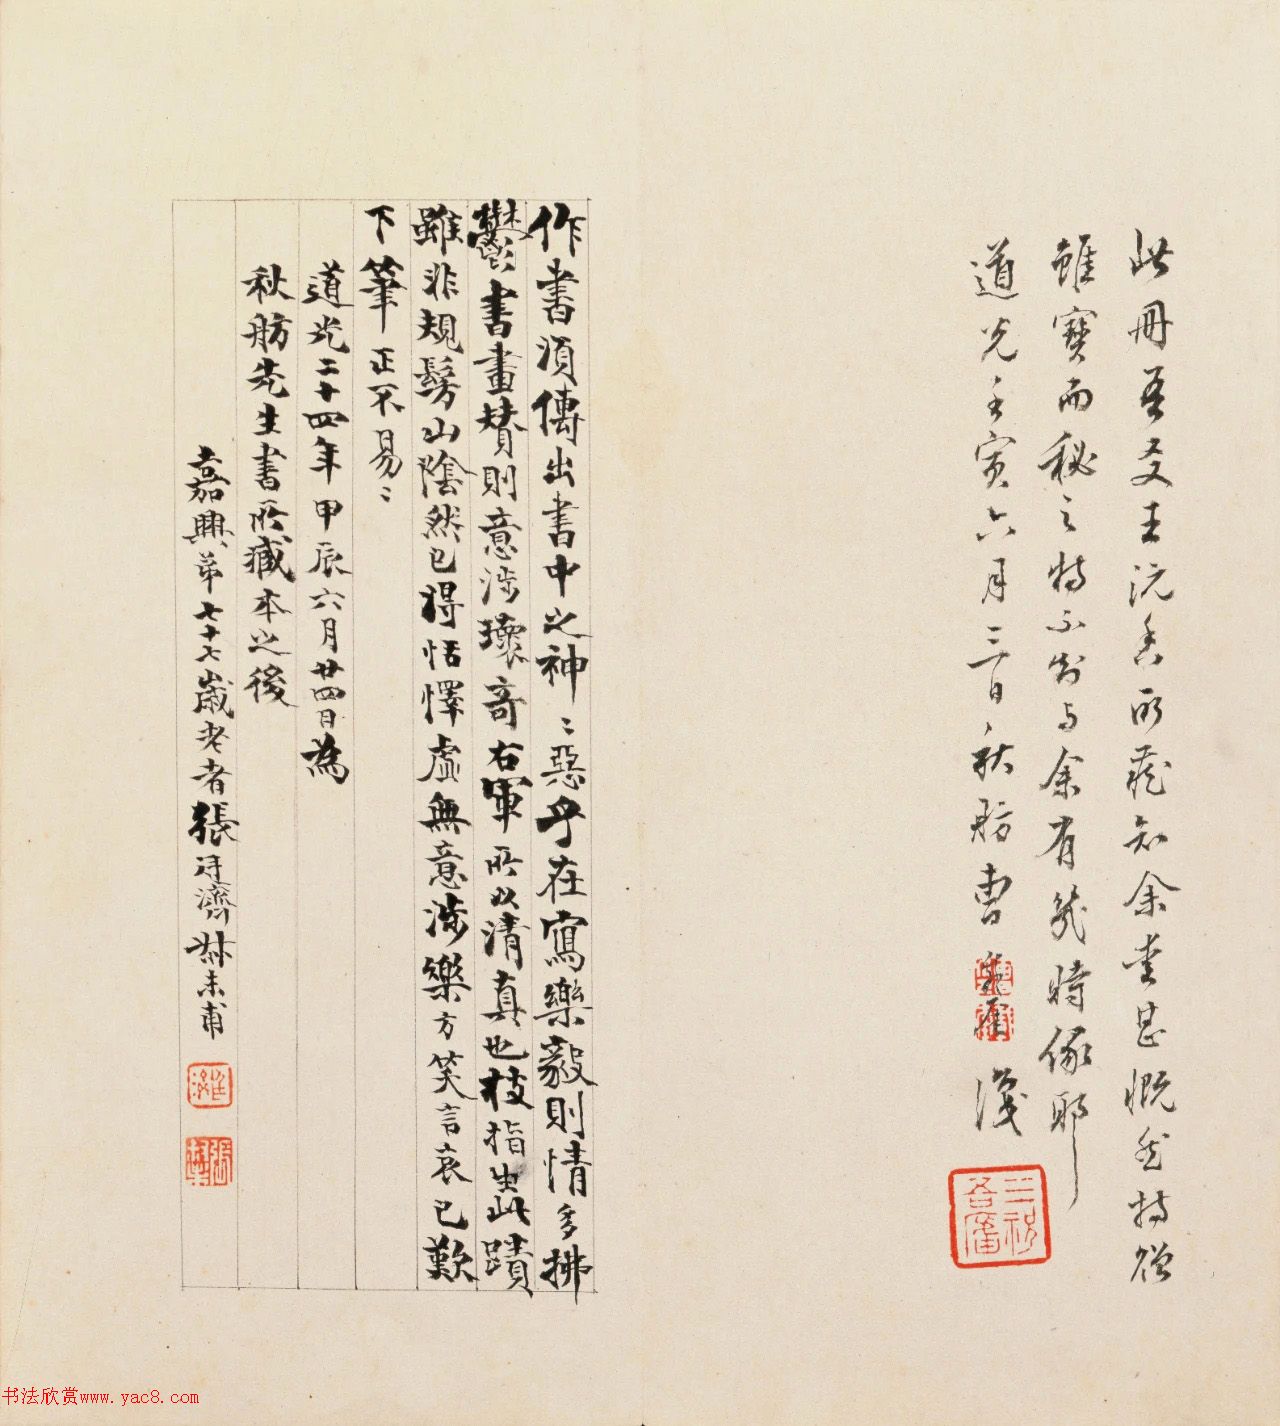 此冊吾友王沅君所藏知余愛甚慨然持贈
雖寶而秘之特不知与余有幾時緣耶
道光壬寅六月三日秋舫曹 識
作書須傳出書中之神〻惡乎在寫樂毅則情多拂
鬱書畫賛則意涉瓌奇右軍所以清真也枝指生此蹟
雖非規髣山陰然已得恬懌虛無意涉樂方笑言哀已歎
下筆正不易〻
道光二十四年甲辰六月廿四日為
秋舫先生書所藏本之後
嘉興弟七十七歲老者張廷濟尗未甫
张
书法欣赏www.yac8.com